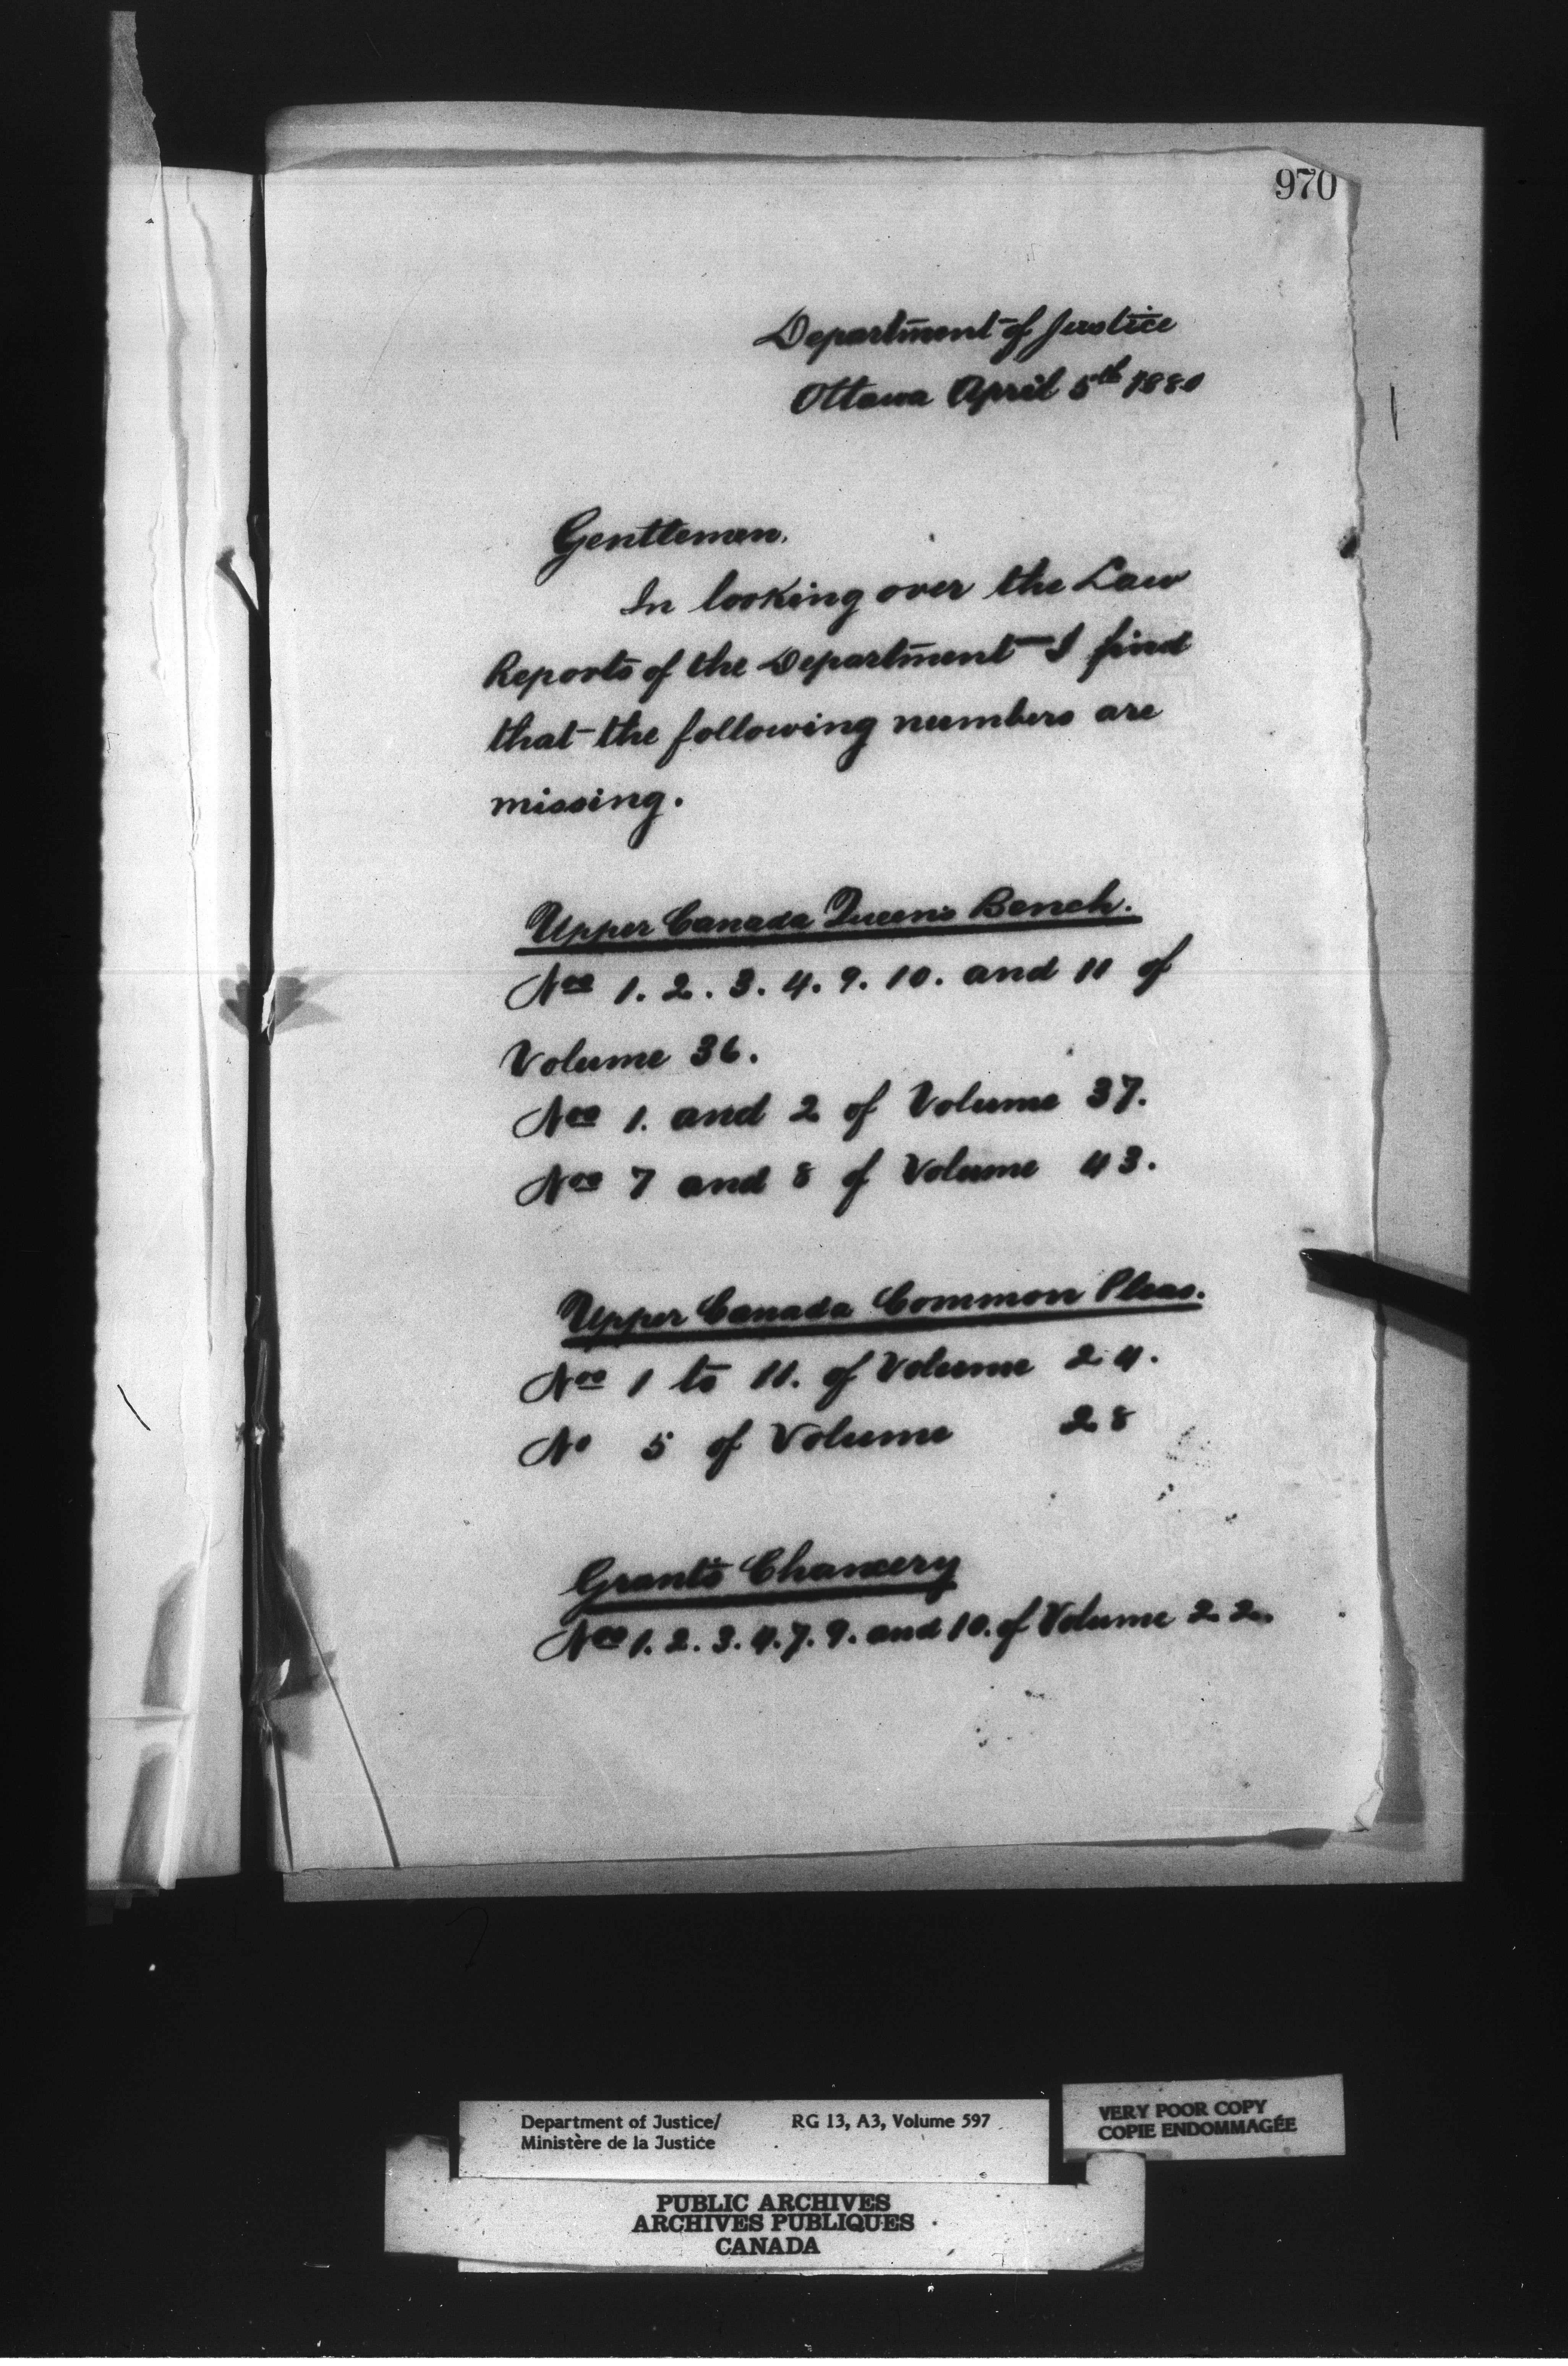 970
Department of Justice
Ottawa April 5th 1880
Gentlemen.
In looking over the Law
Reports of the Department I find
that the following numbers are
missing.
Upper Canada Queen's Bench.
Nos 1. 2. 3. 4. 9. 10. and 11 of
Volume 36.
Nos 1. and 2 of Volume 37.
Nos 7 and 8 of Volume 43.
Upper Canada Common Pleas.
Nos 1 to 11. of Volume 24.
No 5 of Volume 28
Grant's Chancery
Nos 1. 2. 3. 4. 7. 9. and 10. of Volume 22.
Department of Justice/ RG 13, A3, Volume 597
Ministère de la Justice
VERY POOR COPY
COPIE ENDOMMAGÉE
PUBLIC ARCHIVES
ARCHIVES PUBLIQUES
CANADA